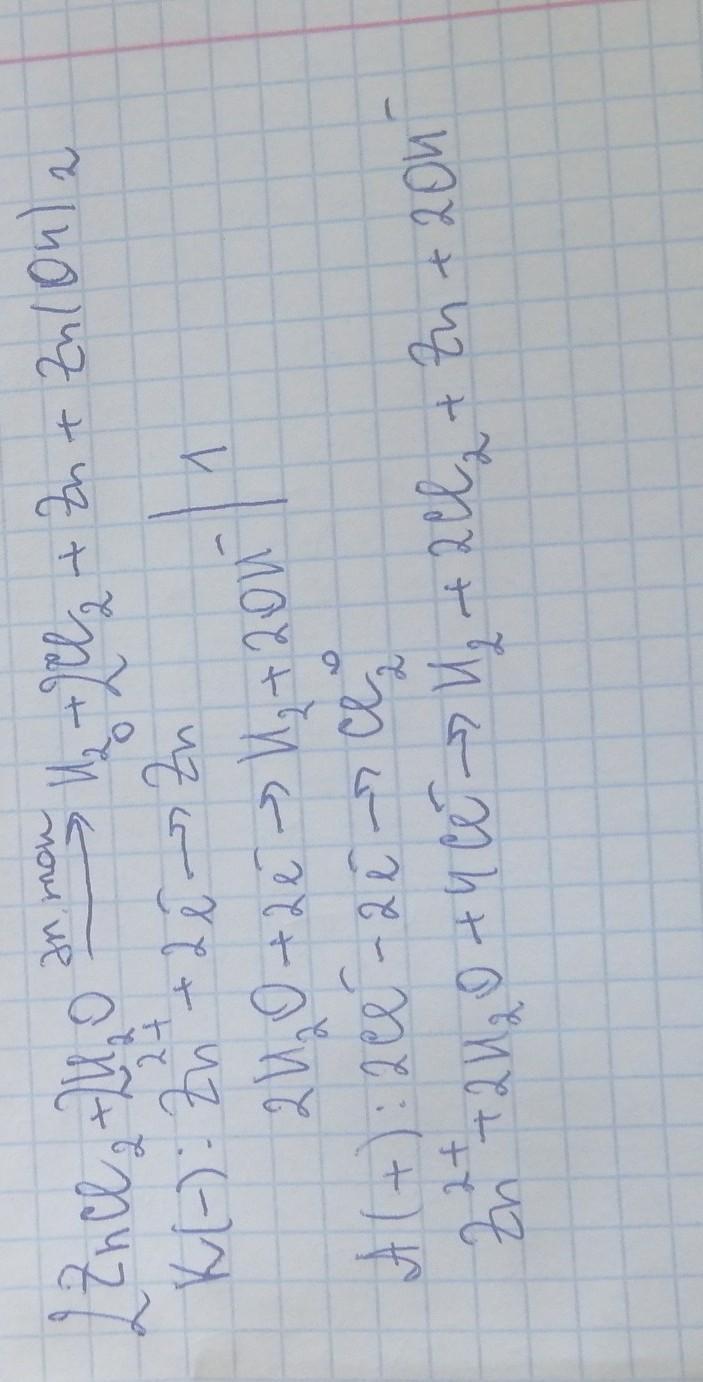 2ZnCl₂ + 2H₂O эл. ток → H₂ + 2Cl₂ + Zn + Zn(OH)₂
K(-): Zn²⁺ + 2ē → Zn⁰ | 1
2H₂O + 2ē → H₂ + 2OH⁻
A(+): 2Cl⁻ - 2ē → Cl₂⁰
Zn²⁺ + 2H₂O + 4Cl⁻ → H₂ + 2Cl₂ + Zn + 2OH⁻